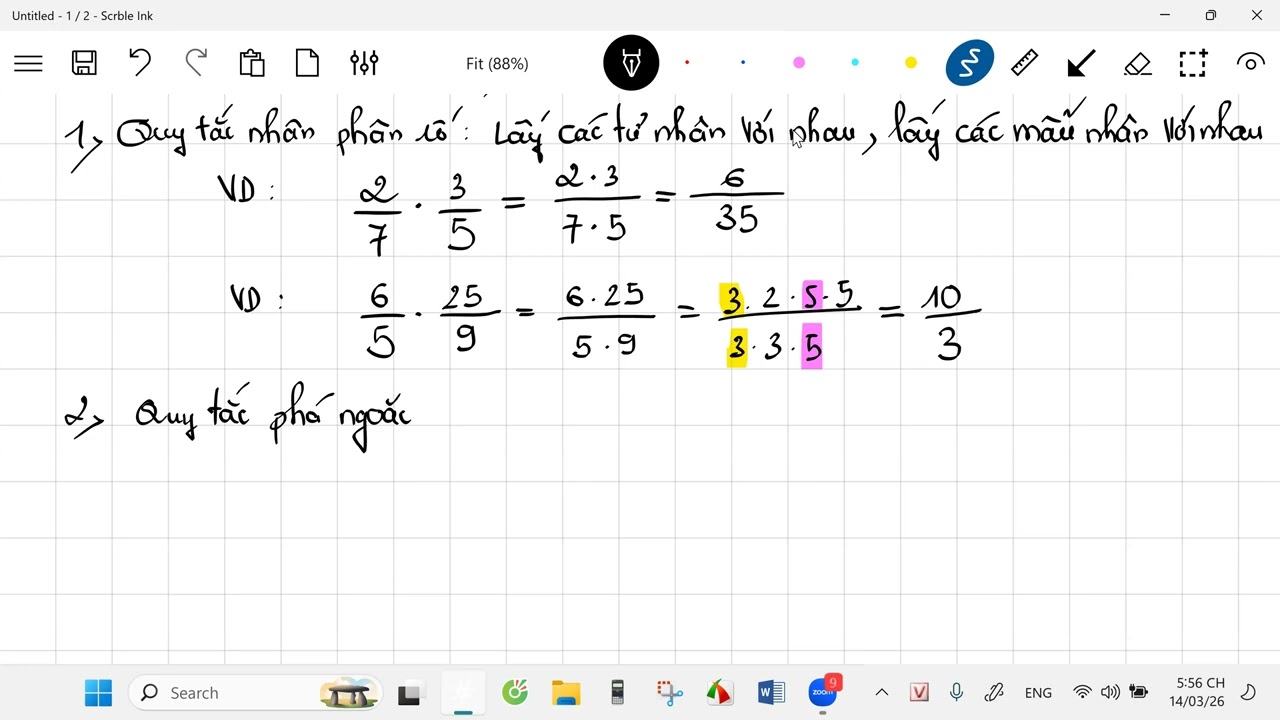 Untitled - 1 / 2 - Scrble Ink
Fit (88%)
1, Quy tắc nhân phân số: Lấy các tử nhân với nhau, lấy các mẫu nhân với nhau
VD: 2/7 · 3/5 = 2·3/7·5 = 6/35
VD: 6/5 · 25/9 = 6·25/5·9 = 3·2·5·5/3·3·5 = 10/3
2, Quy tắc phá ngoặc
Search
zoom
9
ENG
5:56 CH
14/03/26